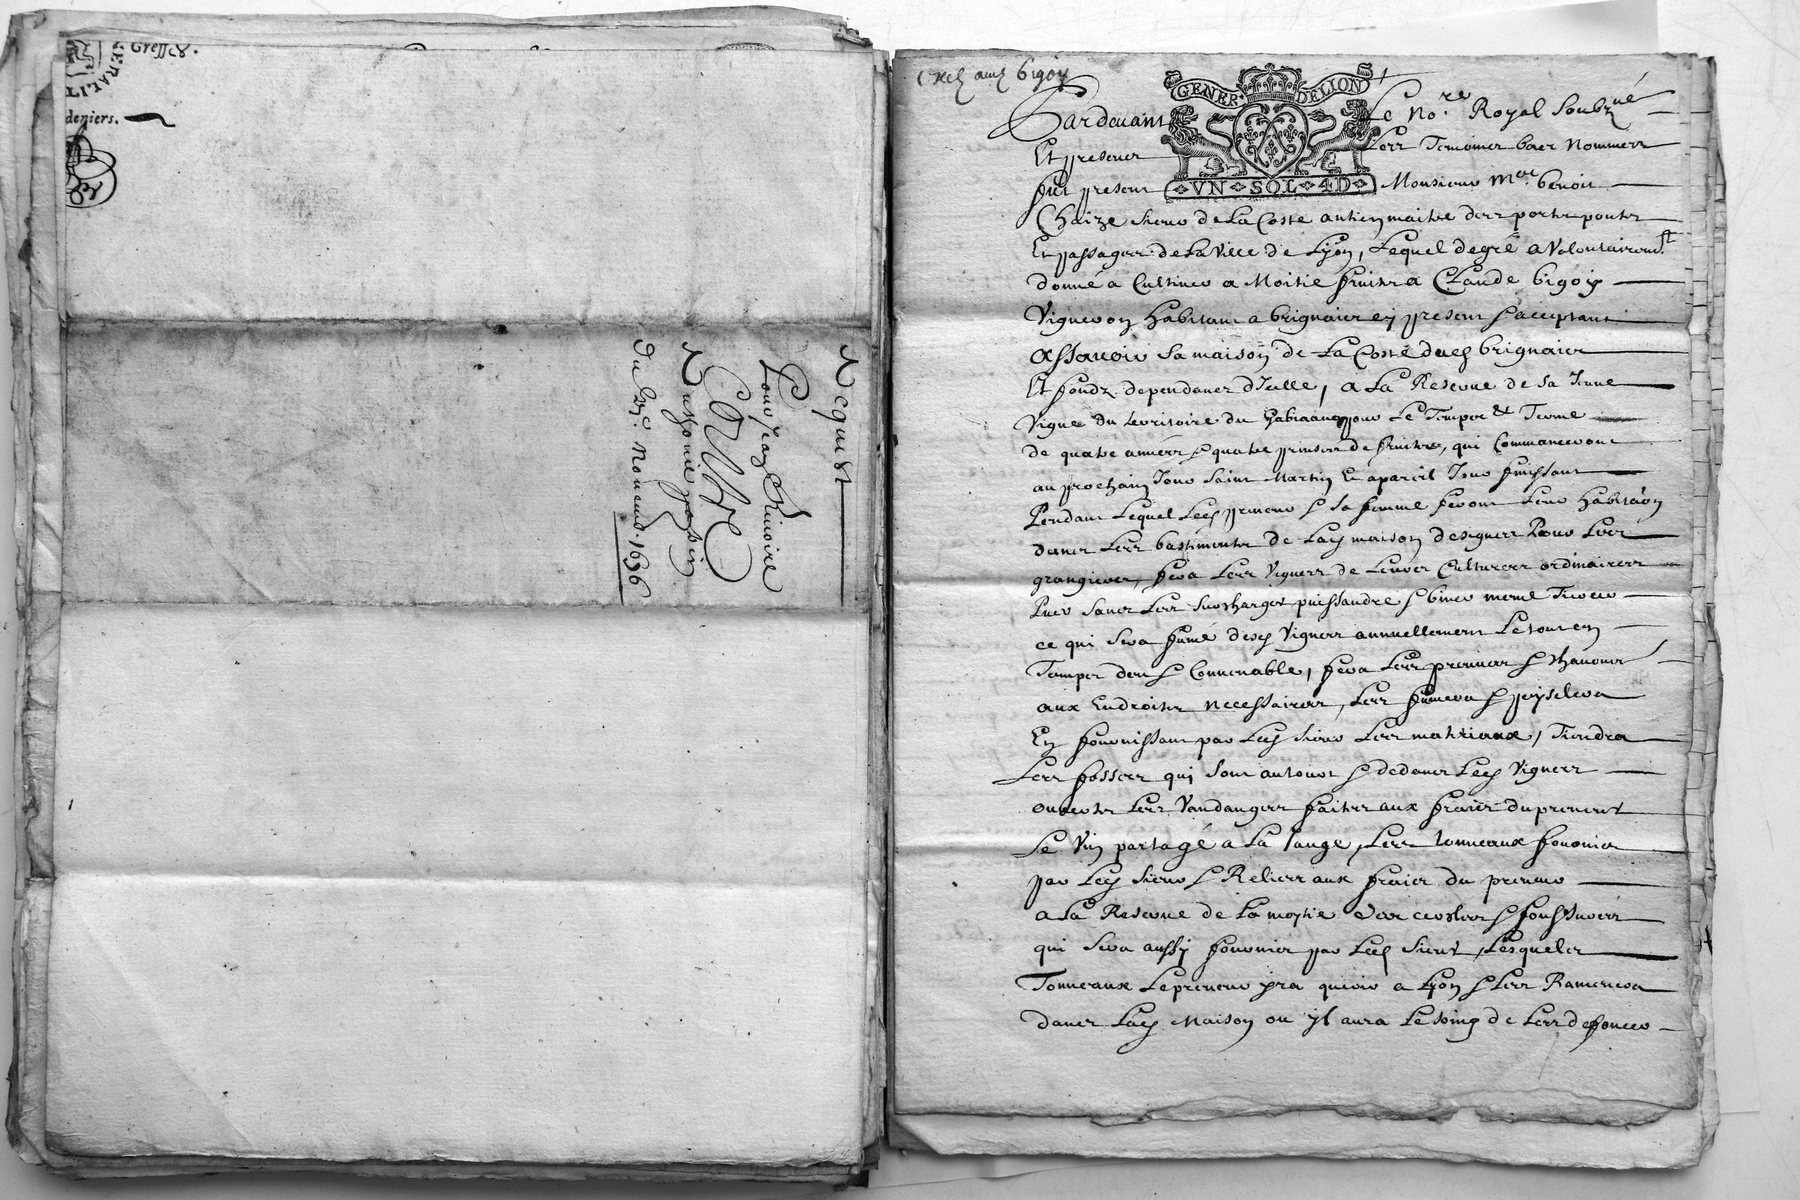 Greffes.
GENERALI
deniers.
Acquist
Pour Jean
Contre
Anthoine
Du 29e. Novemb. 1696
GENER. DE LION
VN SOL 4D
Pardevant Le No.re Royal Soubz.né
Et presence Les Temoins bas Nommes
fut present Monsieur m.re benoit
Chaize sieur de La Coste antien maitre des ports ponts
Et passages de La Ville de Lyon, Lequel de gré a Volontairem.t
donné a Cultiver a Moitié fruits a Claude bigoy
Vigneron habitant a brignais en present & acceptant
assavoir sa maison de La Coste dud brignais
Et fondz dependans d'Icelle, a La Reserve de sa Jeune
Vigne du territoire du pour Le Temps & Terme
de quatre années & quatre prinses de fruits, qui Commanceront
au prochain Jour Saint Martin Et a pareil Jour finissant
Pendant Lequel Led preneur & sa femme feront Leur habitaon
dans Les bastiments de Lad maison designes Pour Les
grangiers, fera Les Vignes de Leures Cultures ordinaires
sans Les surcharger & biner meme
ce qui sera fumé desd Vignes annuellement Le tout en
Temps deu & Convenable, fera Les &
aux Endroits necessaires, Les fumera &
En fournissant par Led sieur Les materiaux, Tiendra
Les fosses qui sont autour & dedans Led Vignes
ouvertes Les Vandanges faites aux fraies du preneur
Le Vin partagé a La Tauge, Les tonneaux fournis
par Led sieur & Reliers aux fraies du preneur
a La Reserve de La moytié des cercles &
qui sera aussy fournie par Led sieur, Lesquels
Tonneaux Le preneur yra querir a Lyon & Les Ramenera
dans Lad Maison ou yl aura Le soing de Les defoncer